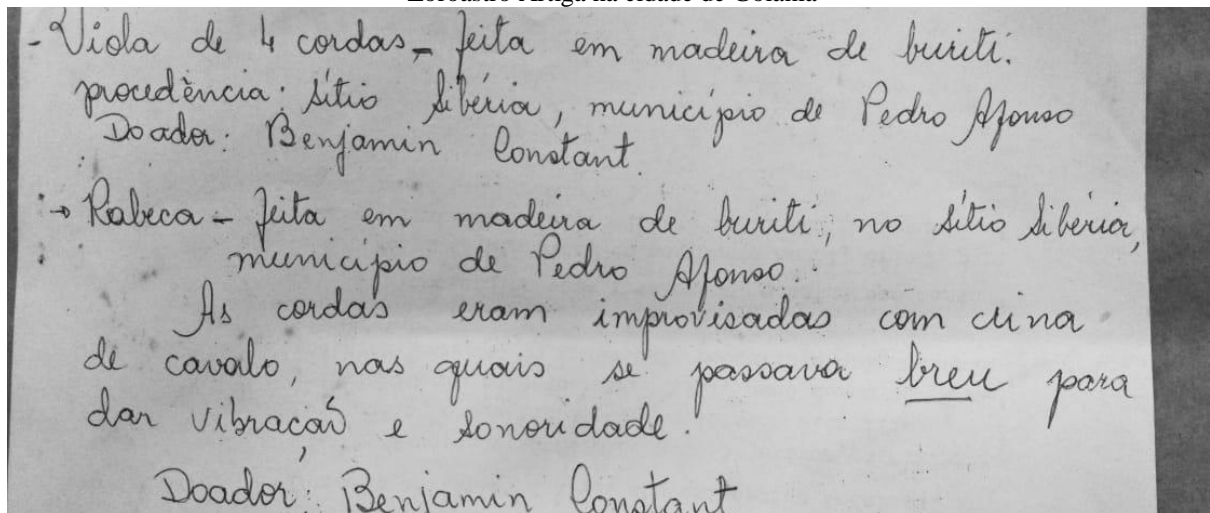 Zoroastro Artiga na cidade de Goiânia
- Viola de 4 cordas - feita em madeira de buriti.
procedência: sítio Sibéria, município de Pedro Afonso
Doador: Benjamin Constant.
→ Rabeca - feita em madeira de buriti, no sítio Sibéria,
município de Pedro Afonso.
As cordas eram improvisadas com clina
de cavalo, nas quais se passava breu para
dar vibração e sonoridade.
Doador: Benjamin Constant